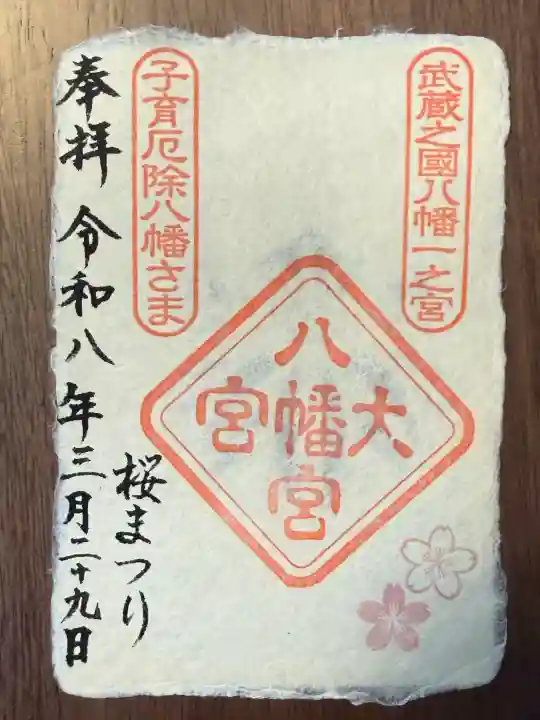 武蔵之國八幡一之宮
大宮八幡宮
子育厄除八幡さま
桜まつり
奉拝 令和八年三月二十九日